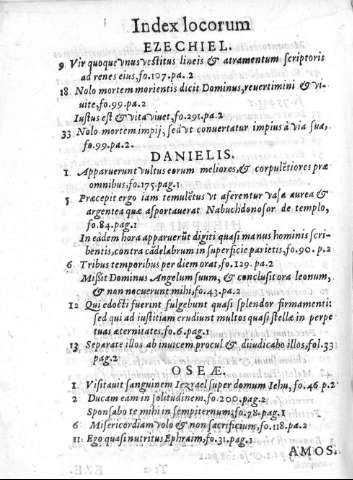 Index locorum
EZECHIEL.
9 Vir quoque vnus vestitus lineis & atramentum scriptoris
ad renes eius, fo.107.pa.2
18 Nolo mortem morientis dicit Dominus, reuertimini & vi-
uite, fo.99.pa.2
Iustus est & vita viuet, fo.291.pa.2
33 Nolo mortem impij, sed vt conuertatur impius à via sua,
fo.99.pa.2.
DANIELIS.
1. Apparuerunt vultus eorum meliores, & corpulẽtiores præ
omnibus, fo.175.pag.1
5 Præcepit ergo iam temulẽtus vt aferentur vasa aurea &
argentea quæ asportauerat Nabuchdonosor de templo,
fo.84.pag.1
In eadem hora apparuerũt digiti quasi manus hominis scri-
bentis, contra cãdelabrum in superficie parietis, fo.90. p.2
6 Tribus temporibus per diem orat, fo.129.pa.2
Missit Dominus Angelum suum, & conclusit ora leonum,
& non nocuerunt mihi, fo.43.pa.2
12 Qui edocti fuerint fulgebunt quasi splendor firmamenti:
sed qui ad iustitiam erudiunt multos quasi stellæ in perpe
tuas æternitates, fo.6.pag.1
13 Separate illos ab inuicem procul & diiudicabo illos, fol.33
pag.2
OSEÆ.
1 Visitauit sanguinem Iezrael super domum Iehu, fo.46 p.2
2 Ducam eam in solitudinem, fo.200.pag.2
Sponsabo te mihi in sempiternum, fo.78.pag.1
6 Misericordiam volo & non sacrificium, fo.118.pa.2
11: Ego quasi nutritus Ephraim, fo.31.pag.1
AMOS.